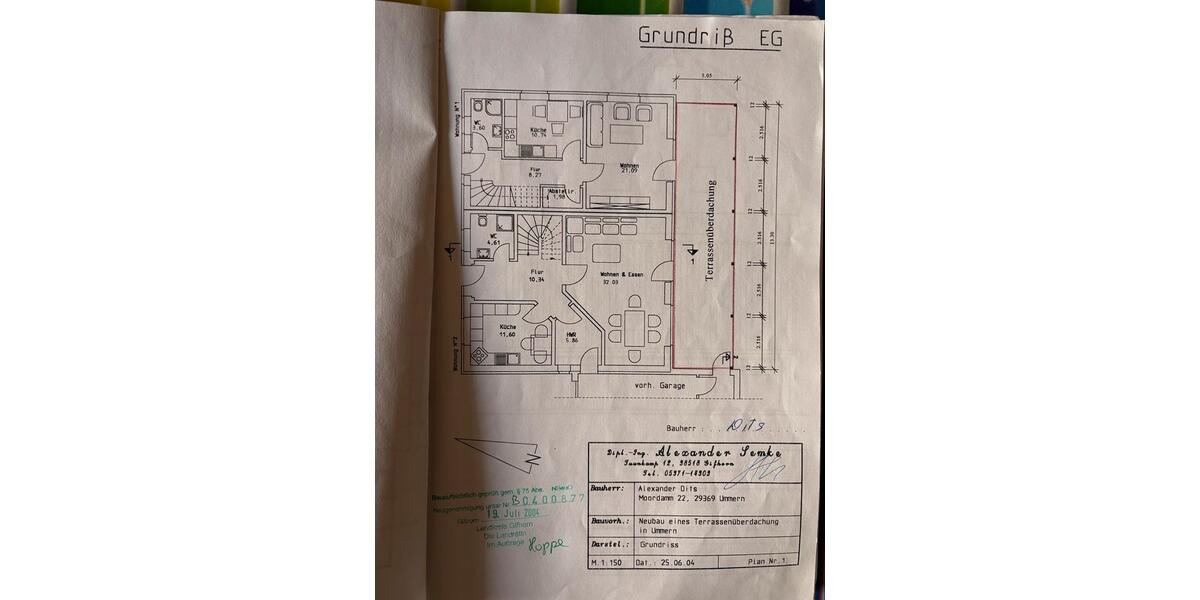 Grundriß EG
3.05
Wohnung N°1
WC
3.60
Küche
10.74
Flur
8.27
Abstellr.
1.98
Wohnen
21.09
12
2.516
12
2.516
12
2.516
12
2.516
12
2.516
12
13.30
Terrassenüberdachung
WC
4.61
1
1
Flur
10.34
Wohnen & Essen
32.03
Küche
11,60
HWR
5.86
Wohnung N°2
2
vorh. Garage
Bauherr : . . Dits . . . . .
N
Dipl.-Ing. Alexander Semke
38518 Gifhorn
Tel. 05371-14303
Bauherr: Alexander Dits
Moordamm 22, 29369 Ummern
Bauvorh.: Neubau eines Terrassenüberdachung
in Ummern
Darstel.: Grundriss
M.1:150 Dat.: 25.06.04 Plan Nr.1
Bauaufsichtlich geprüft gem. § 75 Abs.
Baugenehmigung unter Nr. B0400877
Gifhorn 19. Juli 2004
Landkreis Gifhorn
Die Landrätin
Im Auftrage Hoppe